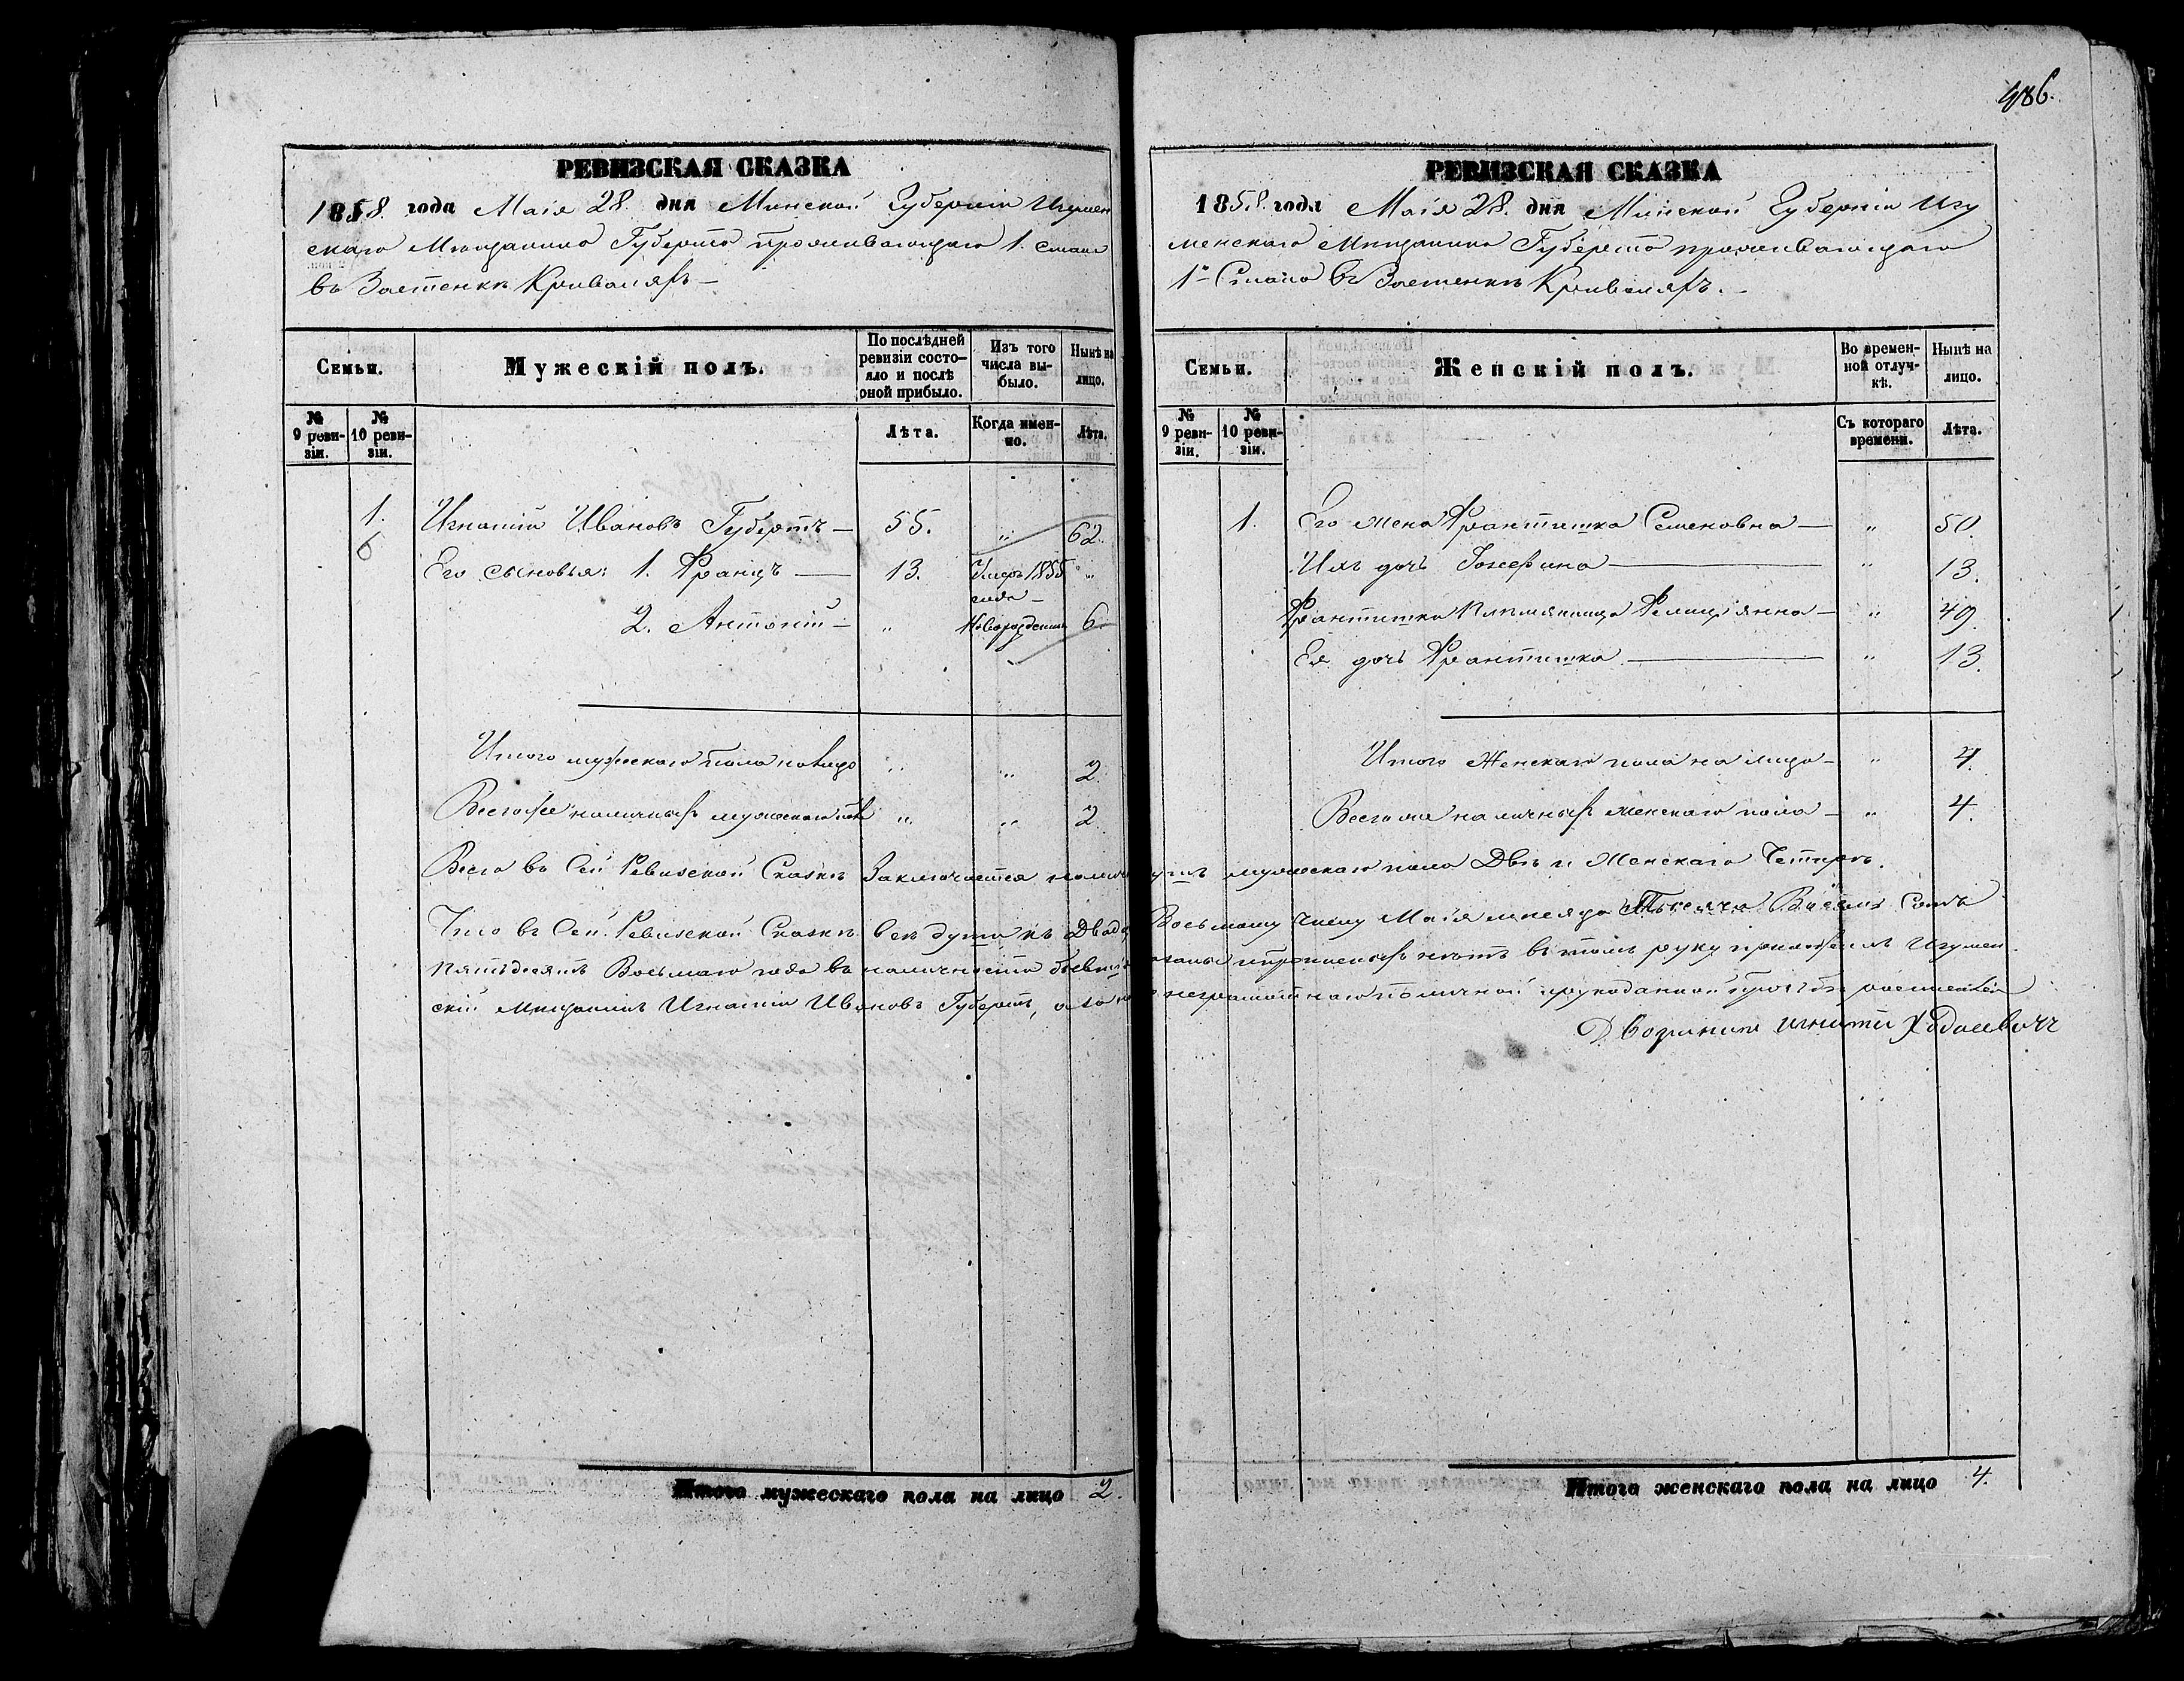 486.
РЕВИЗСКАЯ СКАЗКА
1858. года Маія 28. дня Минской Губерніи Игумен
скаго Мищанина Губерта проживающаго 1. стана
въ Застенкѣ Криваляхъ —
Семьи.
Мужескій полъ.
По послѣдней ревизіи состо-
яло и послѣ
оной прибыло.
Изъ того
числа вы-
было.
Нынѣ на
лицо.
№ 9 реви-
зіи.
№ 10 реви-
зіи.
Лѣта.
Когда имен-
но.
Лѣта.
1. Игнатій Ивановъ Губертъ — 55. „ 62.
6 Его сыновья: 1. Францъ — 13. Умеръ 1855 „
года —
2. Антоній — „ Новорожденный 6.
Итого мужескаго пола на лицо „ „ 2.
Всего же наличныхъ мужескаго пола „ „ 2.
Итого мужескаго пола на лицо 2.
РЕВИЗСКАЯ СКАЗКА
1858. года Маія 28. дня Минской Губерніи Игу
менскаго Мищанина Губерта проживающаго
1го Стана въ Застенкѣ Кривеляхъ. —
Семьи.
Женскій полъ.
Во времен-
ной отлуч-
кѣ.
Нынѣ на
лицо.
№ 9 реви-
зіи.
№ 10 реви-
зіи.
Съ котораго
времени.
Лѣта.
1. Его жена Франтишка Семеновна — „ 50.
Ихъ дочь Іозефина — „ 13.
Франтишка племянница Фелиціянна — „ 49.
Ея дочь Франтишка — „ 13.
Итого Женскаго пола на лицо — „ 4.
Всего же наличныхъ женскаго пола — „ 4.
Всего въ Сей Ревизской Сказкѣ Заключается налич душъ мужескаго пола Двѣ и Женскаго Четыре.
Что въ Сей Ревизской Сказкѣ всѣ души къ Двадц Восьмому числу Маія мѣсяца Тысяча Восемь Сотъ
пятьдесятъ Восьмаго года въ наличности бывшія и прописныхъ нетъ въ томъ руку приложилъ Игумен
скій мищанинъ Игнатій Ивановъ Губертъ, а за не неграмотнаго по личной рукоданной прозьбѣ росписался
Дворянинъ Игнатій Ходасевичъ
Итого женскаго пола на лицо 4.